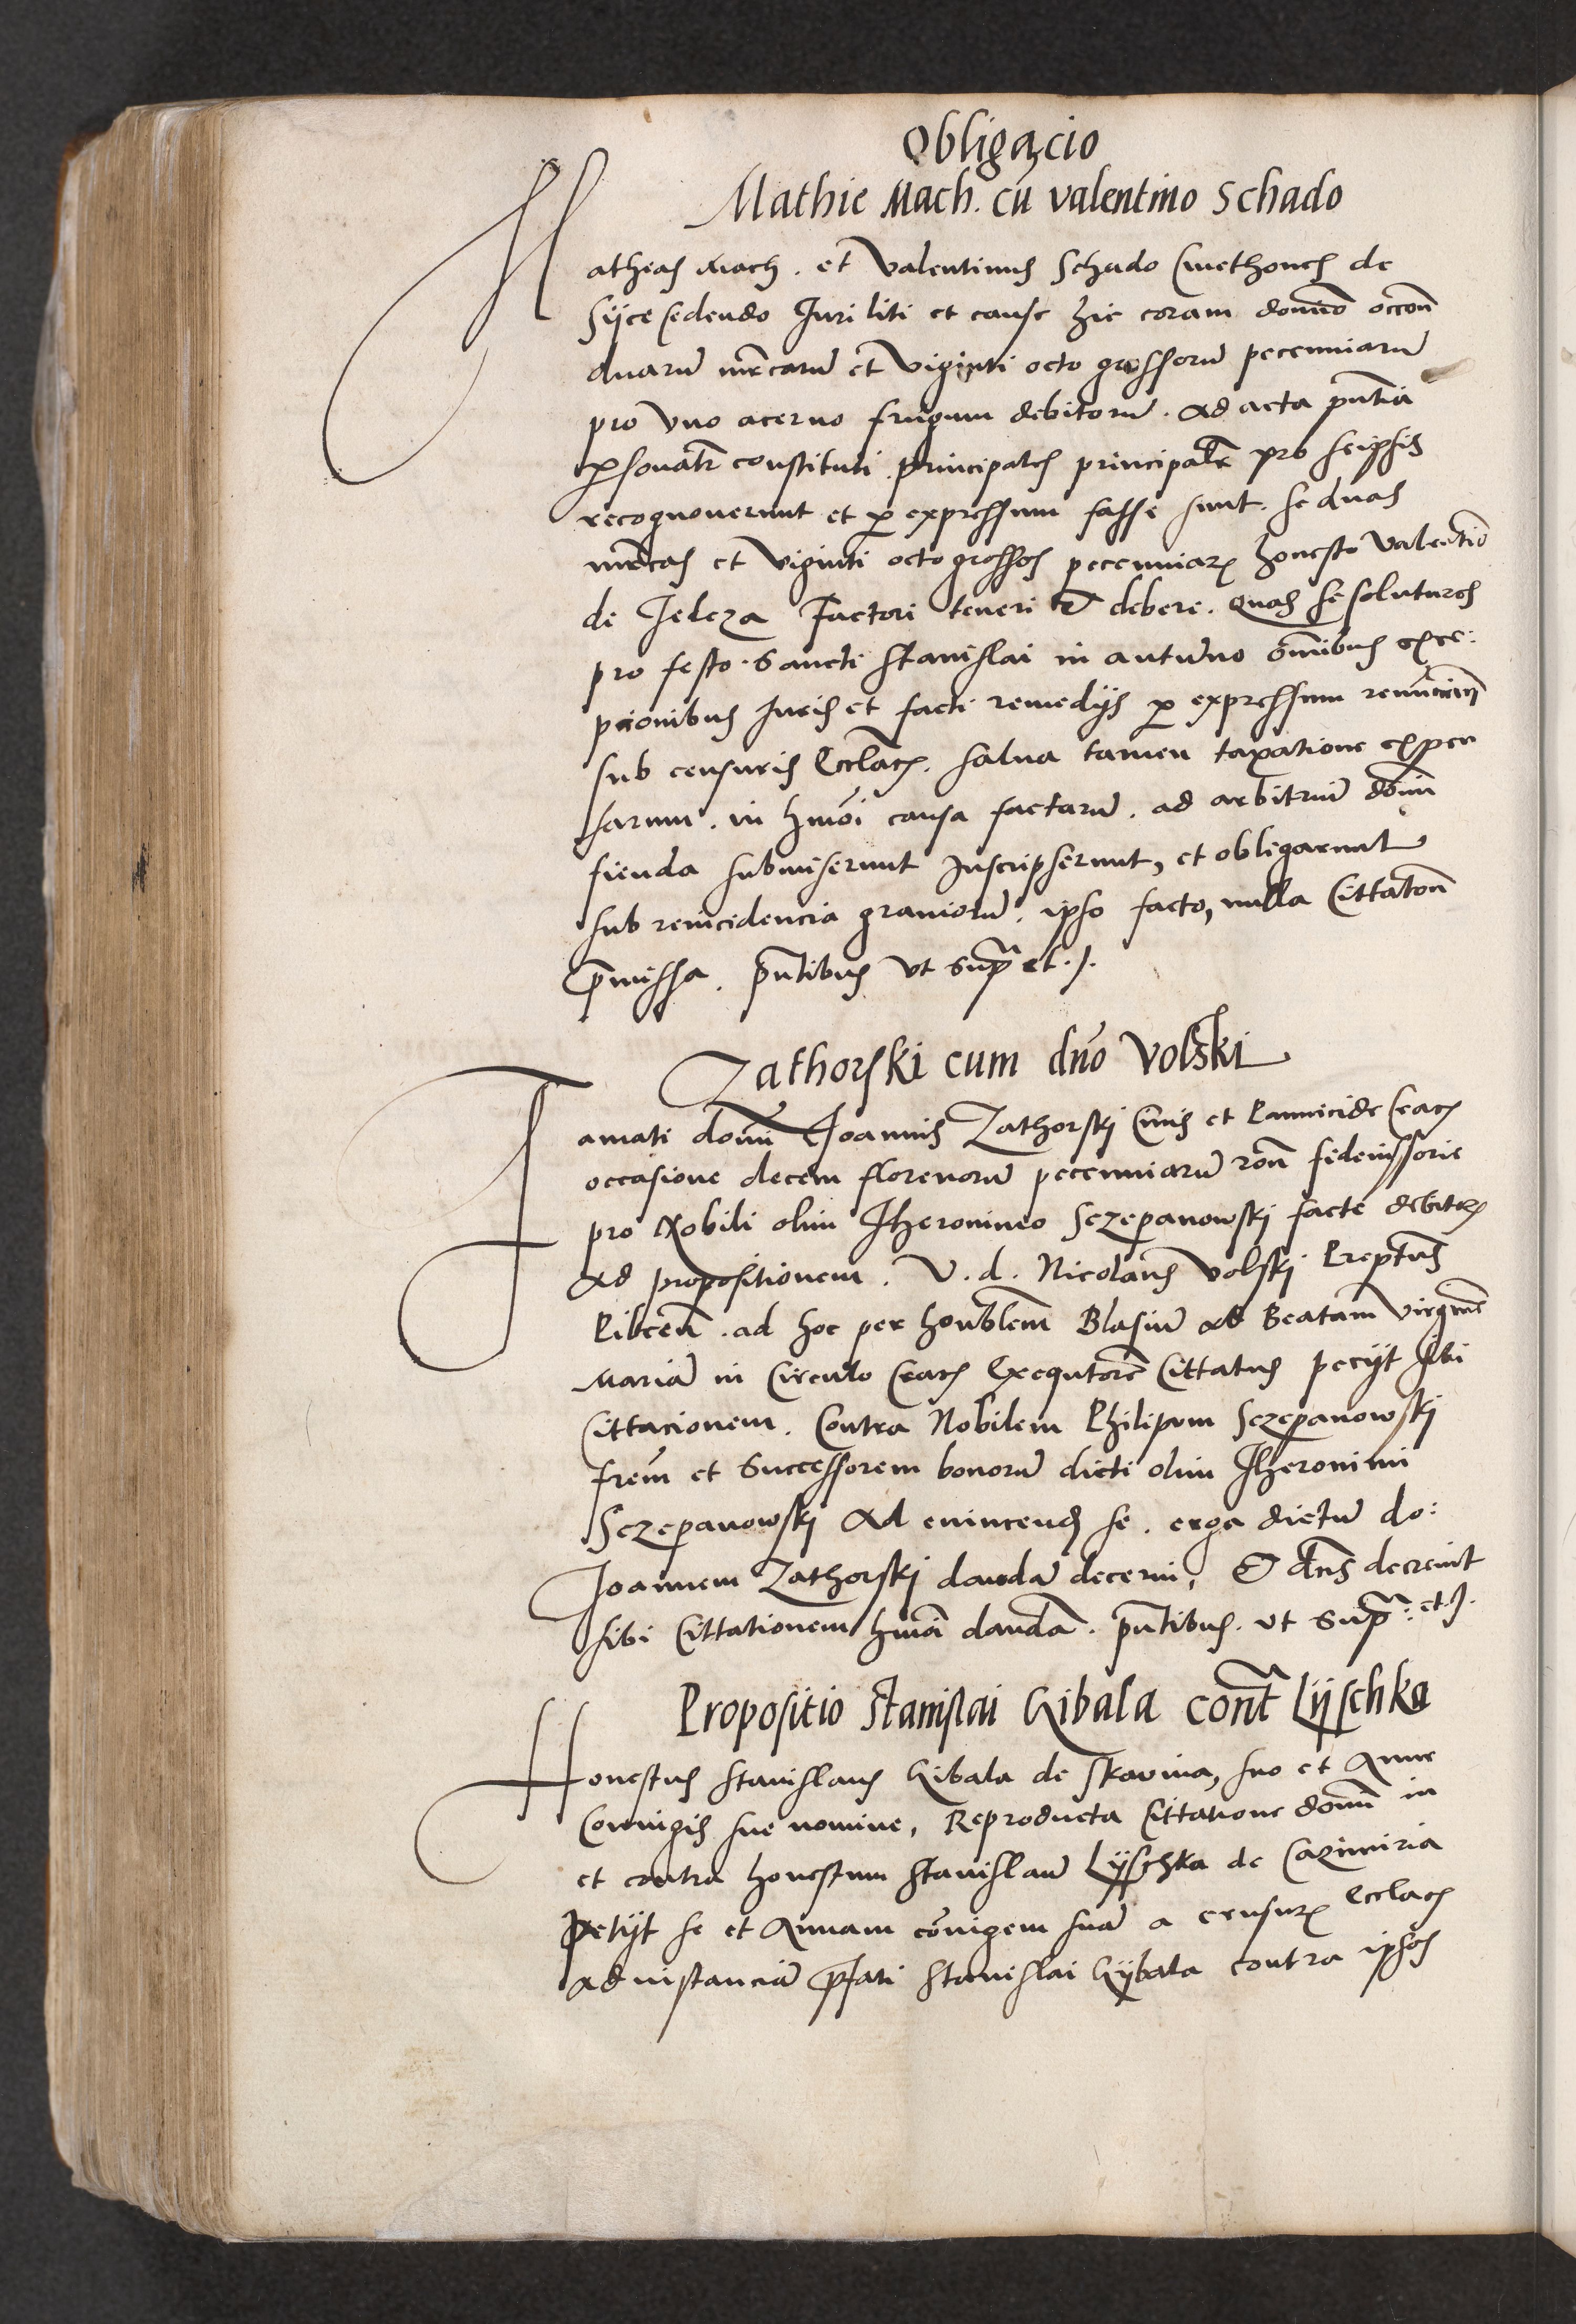 Obligacio
Mathie Mach. cū valentino Schado
Mathias Mach. et Valentinus Schado Cmethones de
Syce sedendo Juri liti et cause hic coram domino occōne
duarū mrcarū et Viginti octo grossorū pecunniarū
pro Vno acervo frugum debitorū. Ad acta pn̄tia
psonalr̄ constituti principales principalr̄ pro seipsis
recognoverunt et p expressum fasse sunt. se duas
mrcas et Viginti octo grossos pecunniarꝝ honesto Valentino
de Jeleza Factori teneri et debere. Quas se soluturos
pro festo Sancti Stanislai in autūno om̄ibus exce:
pcionibus Juris et facti remedijs p expressum renūcian̄
sub censuris Eccla͞cꝫ. salva tamen taxatione expen
sarum. in hmōi causa factarū. ad arbitriū domini
fienda submiserunt Inscripserunt, et obligarunt
sub reincidencia graviorū. ipso facto, nulla Cittatōne
p̄missa. pn̄tibus vt Supra et.).
Zathorski cum dn̄o Volski
Famati domini Joannis Zathorski Civis et Pannicide Cracꝫ
occasione decem florenorū pecunniarū rōne fideiussorie
pro Nobili olim Jheronimeo Sczepanowskj facte debitorꝝ
Ad propositionem. V. d. Nicolaus Volskj Preptūs
ad hoc per honblem Blasiū ad Beatam Virginē
Mariā in Circulo Cracꝫ Exequtorē Cittatus pecijt sibi
Cittacionem. Contra Nobilem Philipum Sczepanowskj
frēm et Successorem bonorū dicti olim Jheronimi
Sczepanowskj Ad evincendꝫ se. erga dictū do:
Joannem Zathorskj dandā decerni, Et dn̄s decrevit
sibi Cittationem hmōi dandā. pn̄tibus. vt Supra: et.).
Propositio Stanislai Kibala Contra Lijschka
Honestus Stanislaus Kibala de Skavina, suo et Anne
Coniugis sue nomine, Reproducta Cittatione domini in
et contra honestum Stanislaū Lyschka de Cazimiria
Petijt se et Annam cōiugem suā a censurꝫ Ecclacꝫ
ad instanciā p̄fati Stanislai Kijbala contra ipsos